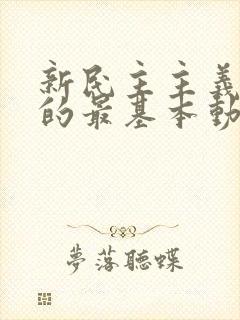 新民主主義
的最基本動
夢落聽蝶